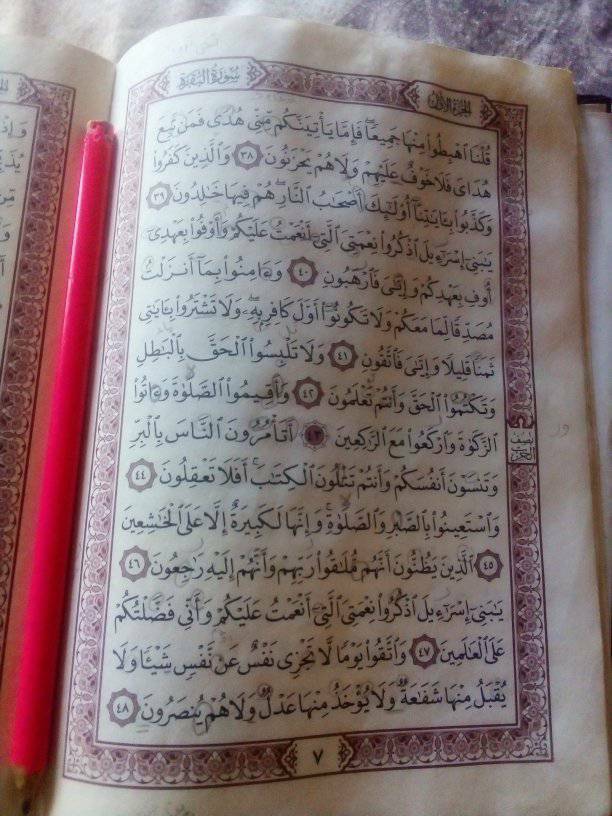 سُورَةُ البَقَرَةِ
الجُزْءُ الأَوَّلُ
قُلْنَا ٱهْبِطُوا۟ مِنْهَا جَمِيعًۭا ۖ فَإِمَّا يَأْتِيَنَّكُم مِّنِّى هُدًۭى فَمَن تَبِعَ
هُدَاىَ فَلَا خَوْفٌ عَلَيْهِمْ وَلَا هُمْ يَحْزَنُونَ ٣٨ وَٱلَّذِينَ كَفَرُوا۟
وَكَذَّبُوا۟ بِـَٔايَـٰتِنَآ أُو۟لَـٰٓئِكَ أَصْحَـٰبُ ٱلنَّارِ ۖ هُمْ فِيهَا خَـٰلِدُونَ ٣٩
يَـٰبَنِىٓ إِسْرَٰٓءِيلَ ٱذْكُرُوا۟ نِعْمَتِىَ ٱلَّتِىٓ أَنْعَمْتُ عَلَيْكُمْ وَأَوْفُوا۟ بِعَهْدِىٓ
أُوفِ بِعَهْدِكُمْ وَإِيَّـٰىَ فَٱرْهَبُونِ ٤٠ وَءَامِنُوا۟ بِمَآ أَنزَلْتُ
مُصَدِّقًۭا لِّمَا مَعَكُمْ وَلَا تَكُونُوٓا۟ أَوَّلَ كَافِرٍۭ بِهِۦ ۖ وَلَا تَشْتَرُوا۟ بِـَٔايَـٰتِى
ثَمَنًۭا قَلِيلًۭا وَإِيَّـٰىَ فَٱتَّقُونِ ٤١ وَلَا تَلْبِسُوا۟ ٱلْحَقَّ بِٱلْبَـٰطِلِ
وَتَكْتُمُوا۟ ٱلْحَقَّ وَأَنتُمْ تَعْلَمُونَ ٤٢ وَأَقِيمُوا۟ ٱلصَّلَوٰةَ وَءَاتُوا۟
ٱلزَّكَوٰةَ وَٱرْكَعُوا۟ مَعَ ٱلرَّٰكِعِينَ ٤٣ أَتَأْمُرُونَ ٱلنَّاسَ بِٱلْبِرِّ
نصف الحزب
وَتَنسَوْنَ أَنفُسَكُمْ وَأَنتُمْ تَتْلُونَ ٱلْكِتَـٰبَ ۚ أَفَلَا تَعْقِلُونَ ٤٤
وَٱسْتَعِينُوا۟ بِٱلصَّبْرِ وَٱلصَّلَوٰةِ ۚ وَإِنَّهَا لَكَبِيرَةٌ إِلَّا عَلَى ٱلْخَـٰشِعِينَ
٤٥ ٱلَّذِينَ يَظُنُّونَ أَنَّهُم مُّلَـٰقُوا۟ رَبِّهِمْ وَأَنَّهُمْ إِلَيْهِ رَٰجِعُونَ ٤٦
يَـٰبَنِىٓ إِسْرَٰٓءِيلَ ٱذْكُرُوا۟ نِعْمَتِىَ ٱلَّتِىٓ أَنْعَمْتُ عَلَيْكُمْ وَأَنِّى فَضَّلْتُكُمْ
عَلَى ٱلْعَـٰلَمِينَ ٤٧ وَٱتَّقُوا۟ يَوْمًۭا لَّا تَجْزِى نَفْسٌ عَن نَّفْسٍۢ شَيْـًۭٔا وَلَا
يُقْبَلُ مِنْهَا شَفَـٰعَةٌۭ وَلَا يُؤْخَذُ مِنْهَا عَدْلٌۭ وَلَا هُمْ يُنصَرُونَ ٤٨
٧